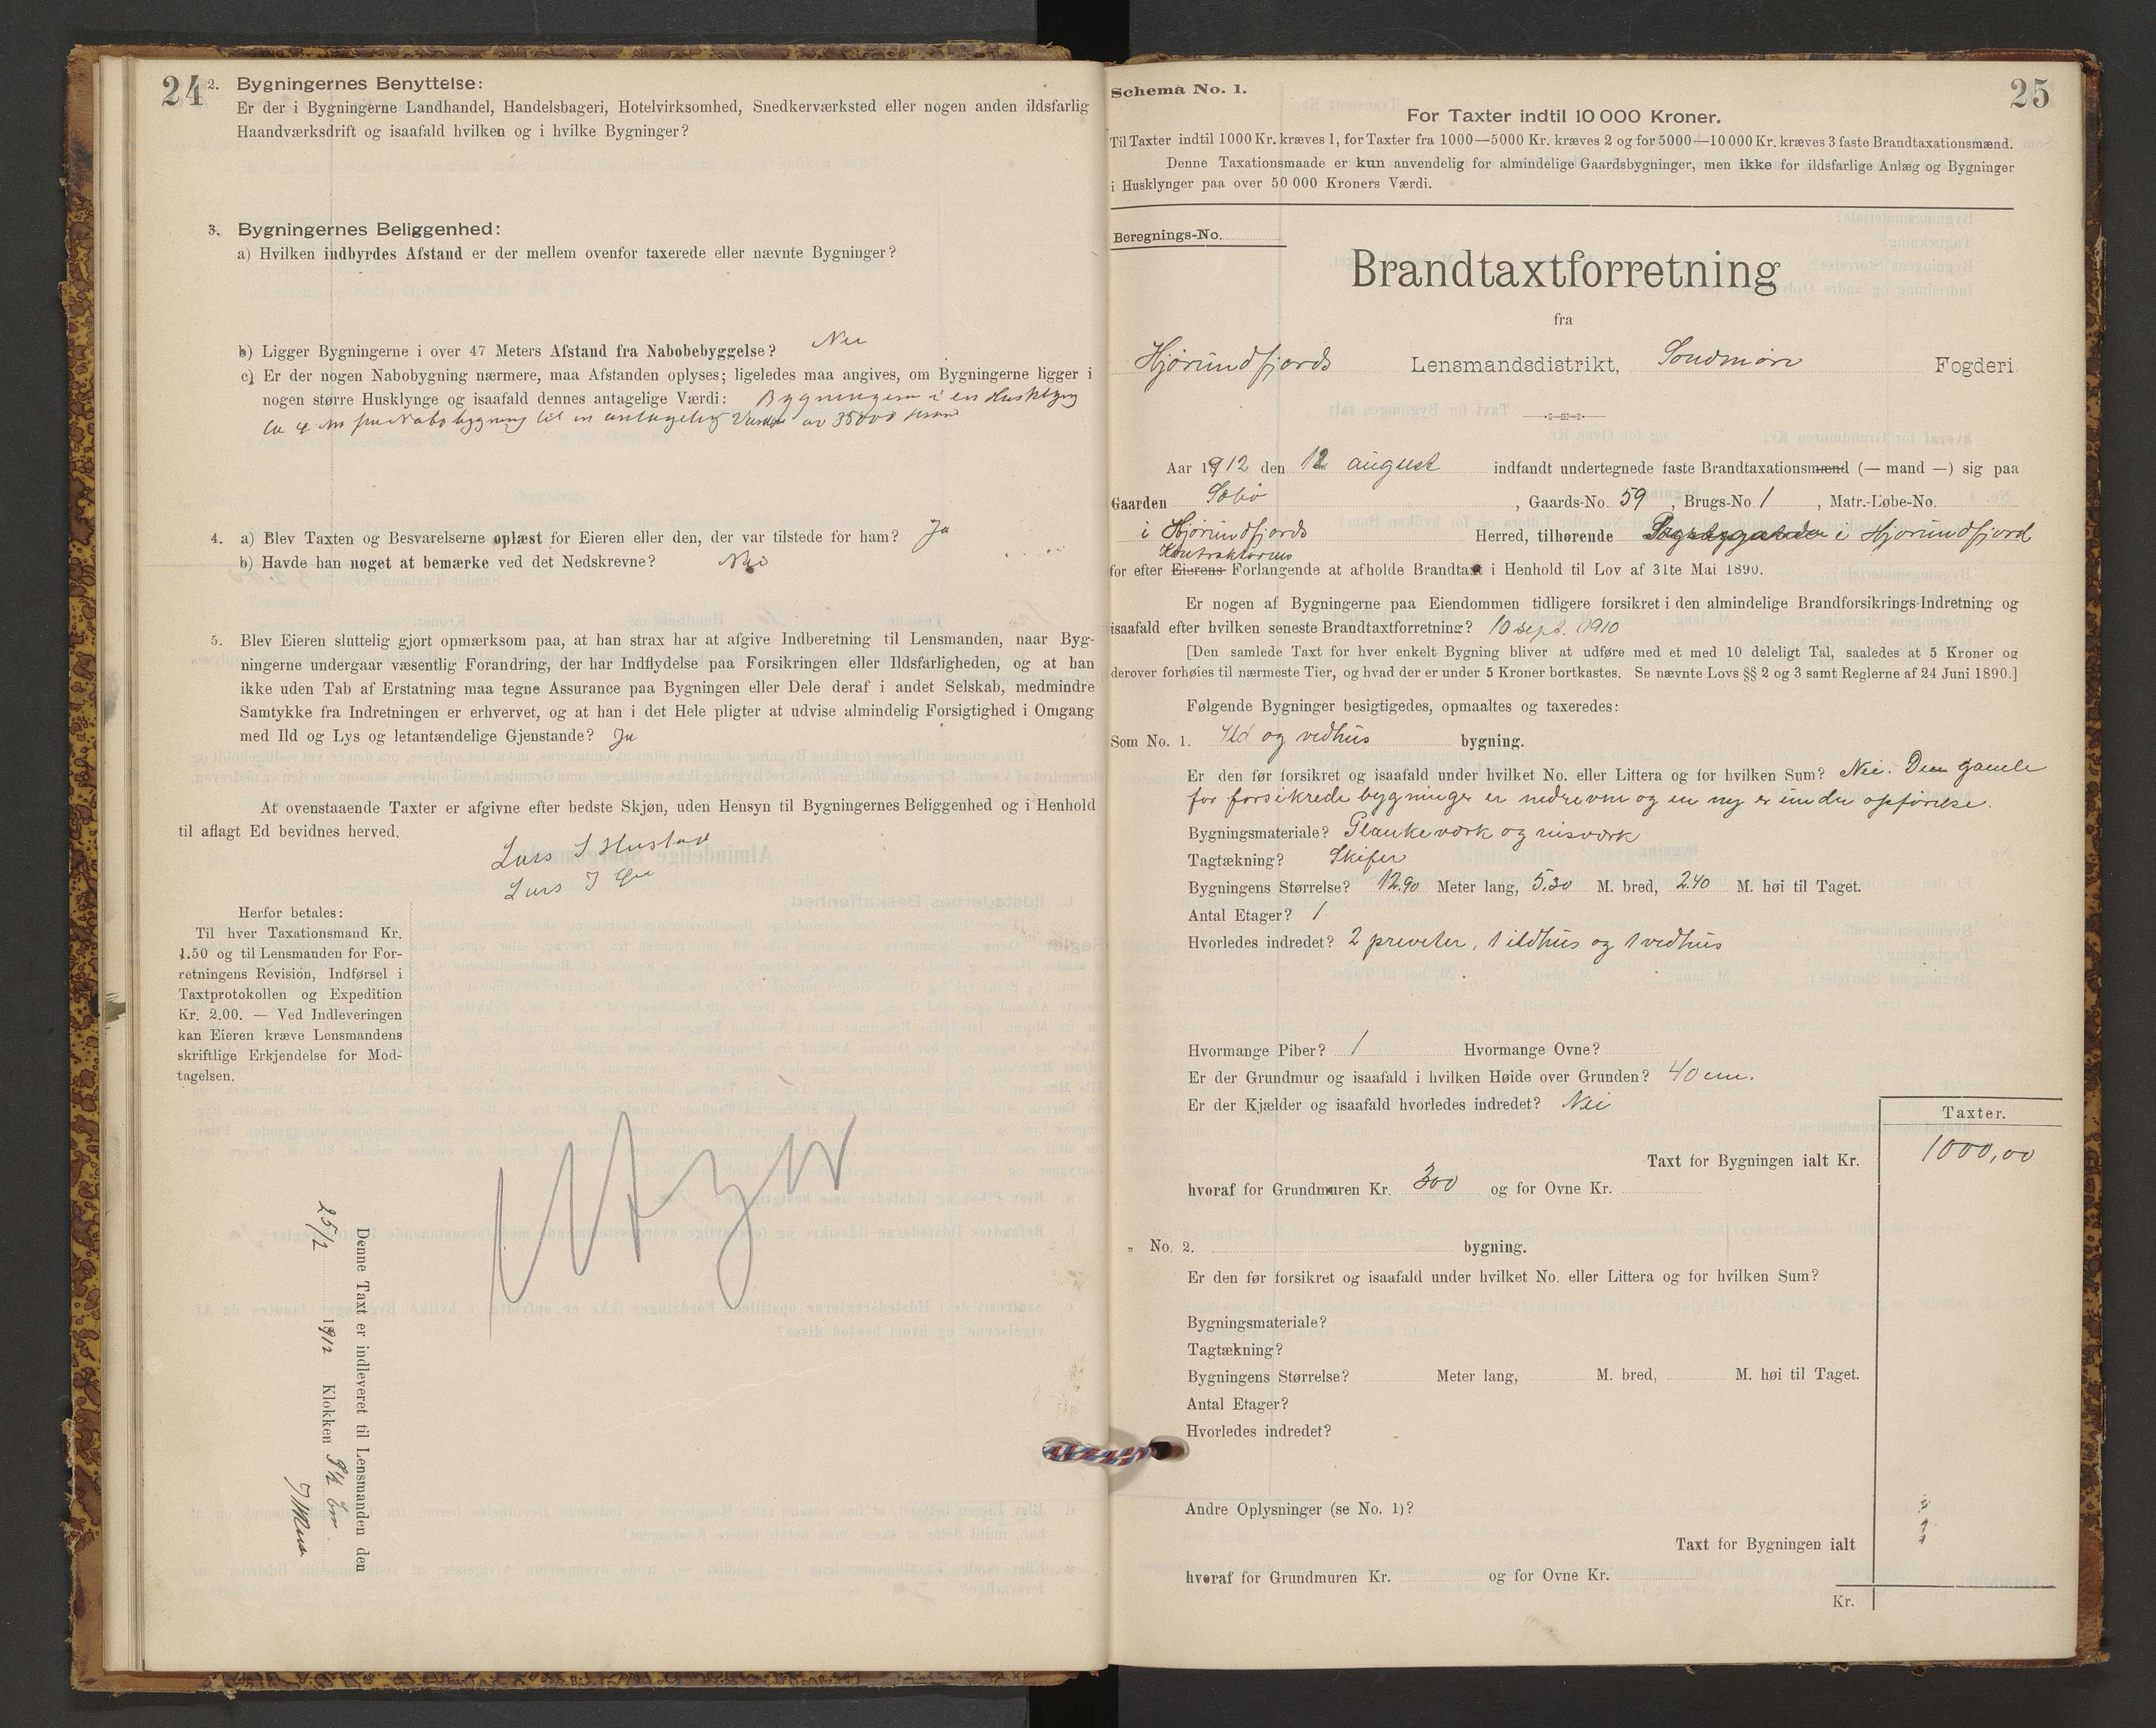 24
2. Bygningernes Benyttelse:
Er der i Bygningerne Landhandel, Handelsbageri, Hotelvirksomhed, Snedkerværksted eller nogen anden ildsfarlig
Haandværksdrift og isaafald hvilken og i hvilke Bygninger?
3. Bygningernes Beliggenhed:
a) Hvilken indbyrdes Afstand er der mellem ovenfor taxerede eller nævnte Bygninger?
b) Ligger Bygningerne i over 47 Meters Afstand fra Nabobebyggelse? Nei
c) Er der nogen Nabobygning nærmere, maa Afstanden oplyses; ligeledes maa angives, om Bygningerne ligger i
nogen større Husklynge og isaafald dennes antagelige Værdi: Bygningerne i en Husklyng
ca 4 m fra Nabobygning til en antagelig Værdi av 35000
4. a) Blev Taxten og Besvarelserne oplæst for Eieren eller den, der var tilstede for ham? Ja
b) Havde han noget at bemærke ved det Nedskrevne? Nei
5. Blev Eieren sluttelig gjort opmærksom paa, at han strax har at afgive Indberetning til Lensmanden, naar Byg-
ningerne undergaar væsentlig Forandring, der har Indflydelse paa Forsikringen eller Ildsfarligheden, og at han
ikke uden Tab af Erstatning maa tegne Assurance paa Bygningen eller Dele deraf i andet Selskab, medmindre
Samtykke fra Indretningen er erhvervet, og at han i det Hele pligter at udvise almindelig Forsigtighed i Omgang
med Ild og Lys og letantændelige Gjenstande? Ja
At ovenstaaende Taxter er afgivne efter bedste Skjøn, uden Hensyn til Bygningernes Beliggenhed og i Henhold
til aflagt Ed bevidnes herved.
Lars I Hustad
Lars I
Herfor betales:
Til hver Taxationsmand Kr.
1.50 og til Lensmanden for For-
retningens Revision, Indførsel i
Taxtprotokollen og Expedition
Kr. 2.00. — Ved Indleveringen
kan Eieren kræve Lensmandens
skriftlige Erkjendelse for Mod-
tagelsen.
Denne Taxt er indleveret til Lensmanden den
25/2 1912 Klokken 9½
Schema No. 1.
25
For Taxter indtil 10 000 Kroner.
Til Taxter indtil 1000 Kr. kræves 1, for Taxter fra 1000—5000 Kr. kræves 2 og for 5000—10 000 Kr. kræves 3 faste Brandtaxationsmænd.
Denne Taxationsmaade er kun anvendelig for almindelige Gaardsbygninger, men ikke for ildsfarlige Anlæg og Bygninger
i Husklynger paa over 50 000 Kroners Værdi.
Beregnings-No.
Brandtaxtforretning
fra
Hjørundfjords Lensmandsdistrikt, Søndmøre Fogderi
Aar 1912 den 12 august indfandt undertegnede faste Brandtaxationsmænd (— mand —) sig paa
Gaarden Sæbø, Gaards-No. 59, Brugs-No 1, Matr.-Løbe-No.
i Hjørundfjords Herred, tilhørende i Hjørundfjord
Kontraktørens
for efter Eierens Forlangende at afholde Brandtaxt i Henhold til Lov af 31te Mai 1890.
Er nogen af Bygningerne paa Eiendommen tidligere forsikret i den almindelige Brandforsikrings-Indretning og
isaafald efter hvilken seneste Brandtaxtforretning? 10 sept. 1910
[Den samlede Taxt for hver enkelt Bygning bliver at udføre med et med 10 deleligt Tal, saaledes at 5 Kroner og
derover forhøies til nærmeste Tier, og hvad der er under 5 Kroner bortkastes. Se nævnte Lovs §§ 2 og 3 samt Reglerne af 24 Juni 1890.]
Følgende Bygninger besigtigedes, opmaaltes og taxeredes:
Som No. 1. Ild og vedhus bygning.
Er den før forsikret og isaafald under hvilket No. eller Littera og for hvilken Sum? Nei. Den gamle
før forsikrede bygninger er nedrevne og en ny er under opførelse.
Bygningsmateriale? Plankeværk og risværk
Tagtækning? Skifer
Bygningens Størrelse? 12.90 Meter lang, 5.30 M. bred, 2.40 M. høi til Taget.
Antal Etager? 1
Hvorledes indredet? 2 preveter, 1 ildhus og 1 vedhus
Hvormange Piber? 1 Hvormange Ovne?
Er der Grundmur og isaafald i hvilken Høide over Grunden? 40 cm.
Er der Kjælder og isaafald hvorledes indredet? Nei
Taxter.
Taxt for Bygningen ialt Kr. 1000,00
hvoraf for Grundmuren Kr. 300 og for Ovne Kr.
„ No. 2. bygning.
Er den før forsikret og isaafald under hvilket No. eller Littera og for hvilken Sum?
Bygningsmateriale?
Tagtækning?
Bygningens Størrelse? Meter lang, M. bred, M. høi til Taget.
Antal Etager?
Hvorledes indredet?
Andre Oplysninger (se No. 1)?
Taxt for Bygningen ialt
hvoraf for Grundmuren Kr. og for Ovne Kr.
Kr.